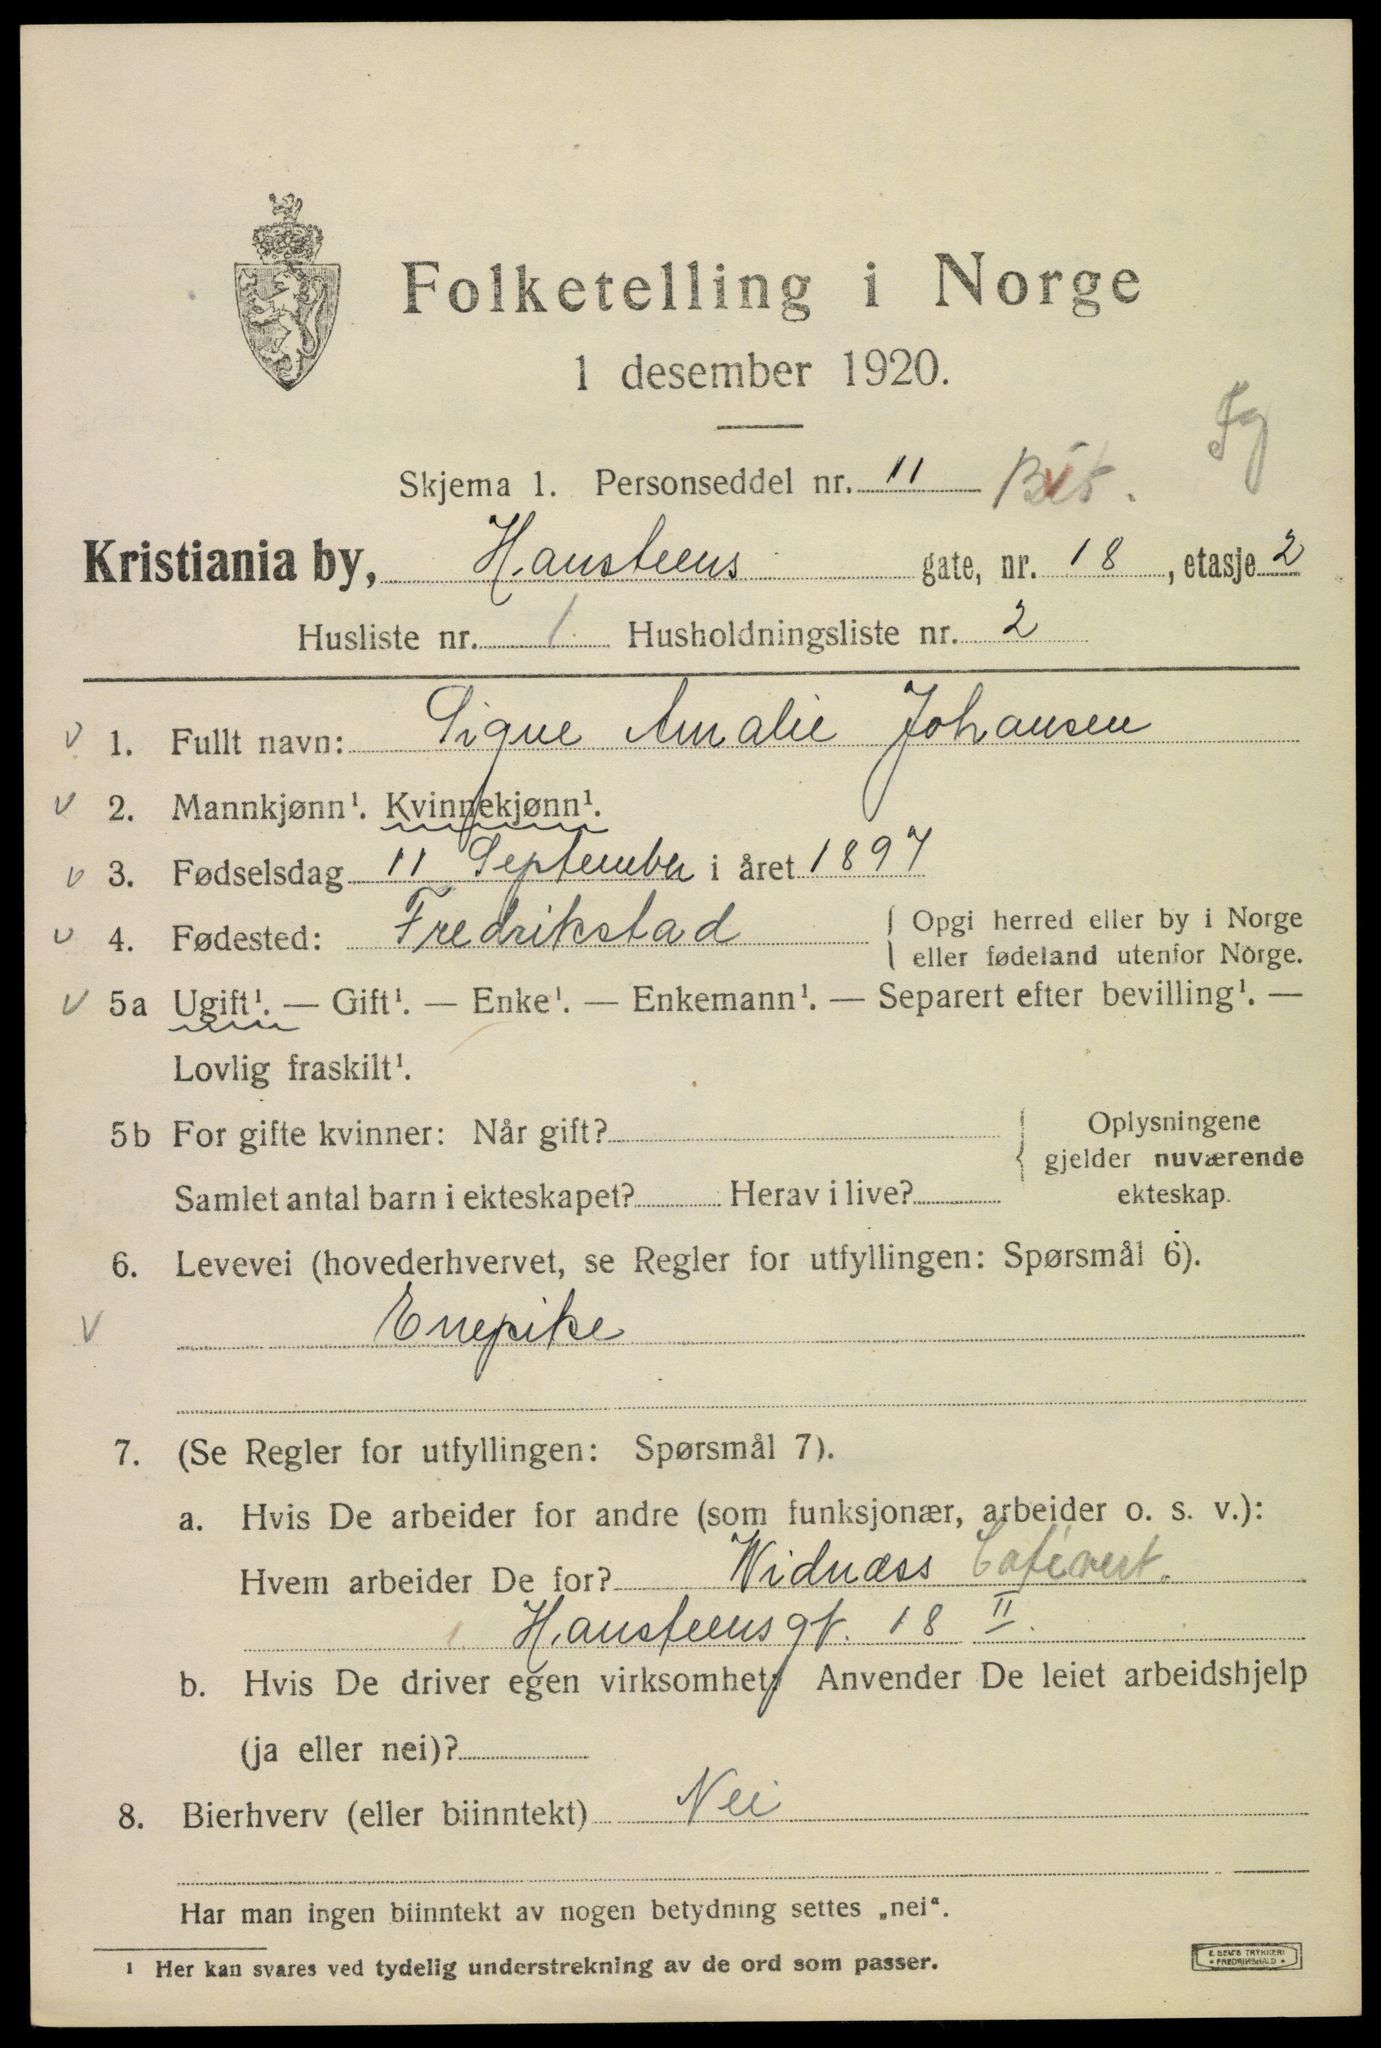 Folketelling i Norge
1 desember 1920.
Skjema 1. Personseddel nr. 11
Kristiania by, Hansteens gate, nr. 18, etasje 2
Husliste nr. 1 Husholdningsliste nr. 2
1. Fullt navn: Signe Amalie Johansen
2. Mannkjønn¹. Kvinnekjønn¹.
3. Fødselsdag 11 September i året 1897
4. Fødested: Fredrikstad { Opgi herred eller by i Norge
eller fødeland utenfor Norge.
5a Ugift¹. — Gift¹. — Enke¹. — Enkemann¹. — Separert efter bevilling¹. —
Lovlig fraskilt¹.
5b For gifte kvinner: Når gift? { Oplysningene
gjelder nuværende
Samlet antal barn i ekteskapet? Herav i live? ekteskap.
6. Levevei (hovederhvervet, se Regler for utfyllingen: Spørsmål 6).
Enepike
7. (Se Regler for utfyllingen: Spørsmål 7).
a. Hvis De arbeider for andre (som funksjonær, arbeider o. s. v.):
Hvem arbeider De for? Widnæss Cafévert.
Hansteensgt. 18 II.
b. Hvis De driver egen virksomhet: Anvender De leiet arbeidshjelp
(ja eller nei)?
8. Bierhverv (eller biinntekt) Nei
Har man ingen biinntekt av nogen betydning settes „nei“.
¹ Her kan svares ved tydelig understrekning av de ord som passer.
E. SEM'S TRYKKERI
FREDRIKSHALD